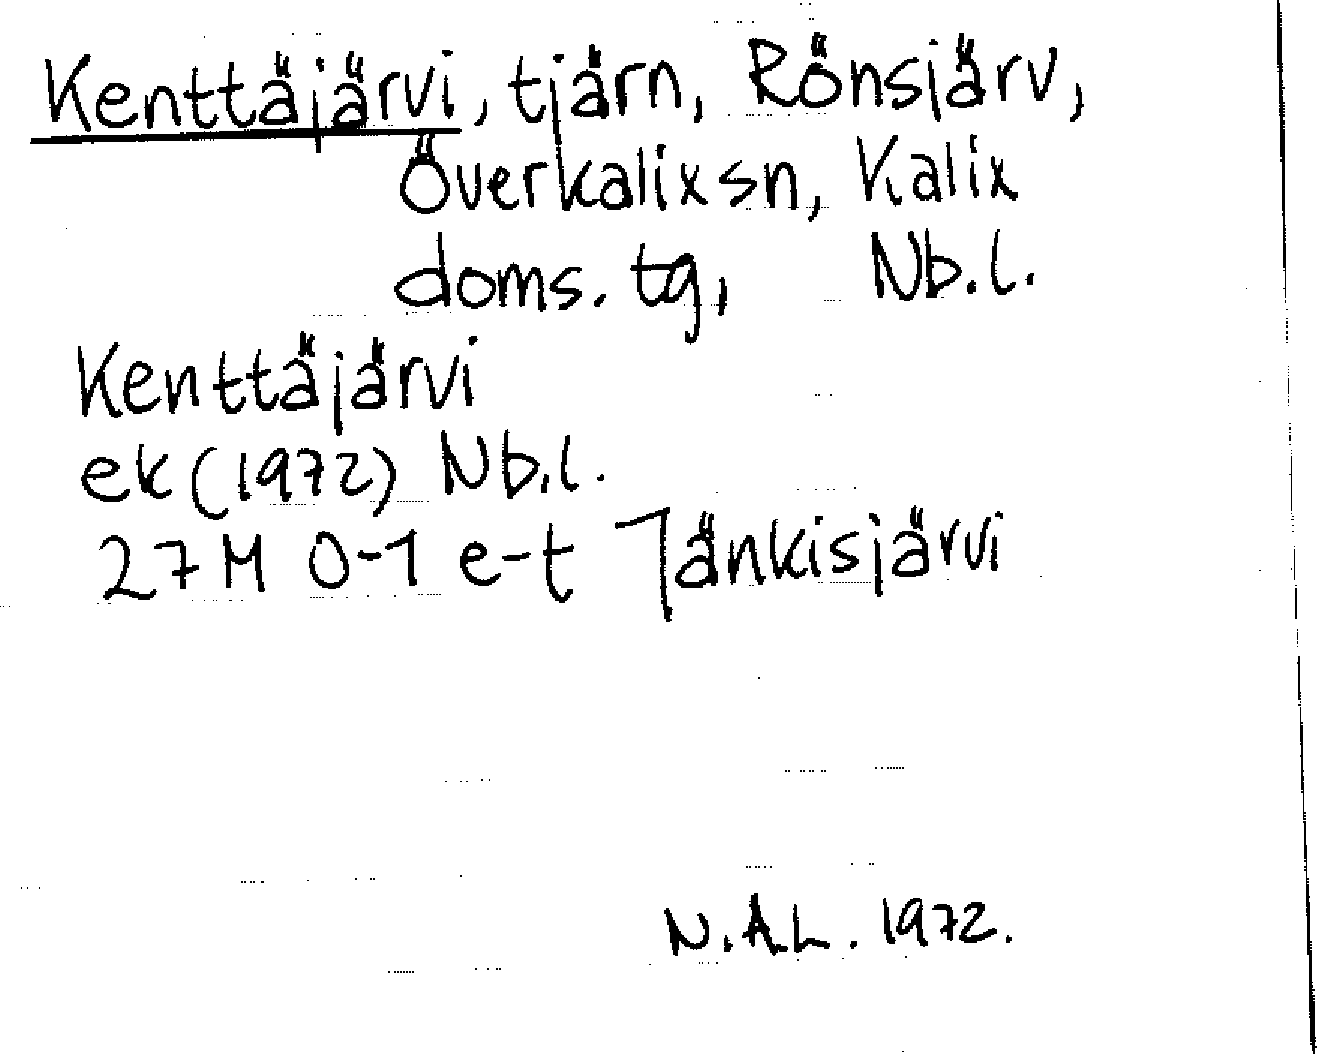 Kenttäjärvi, tjärn, Rönsjärv,
Överkalix sn, Kalix
doms. tg, Nb.l.
Kenttäjärvi
ek (1972) Nb.l.
27M 0-1 e-t Jänkisjärvi
N.Å.L. 1972.